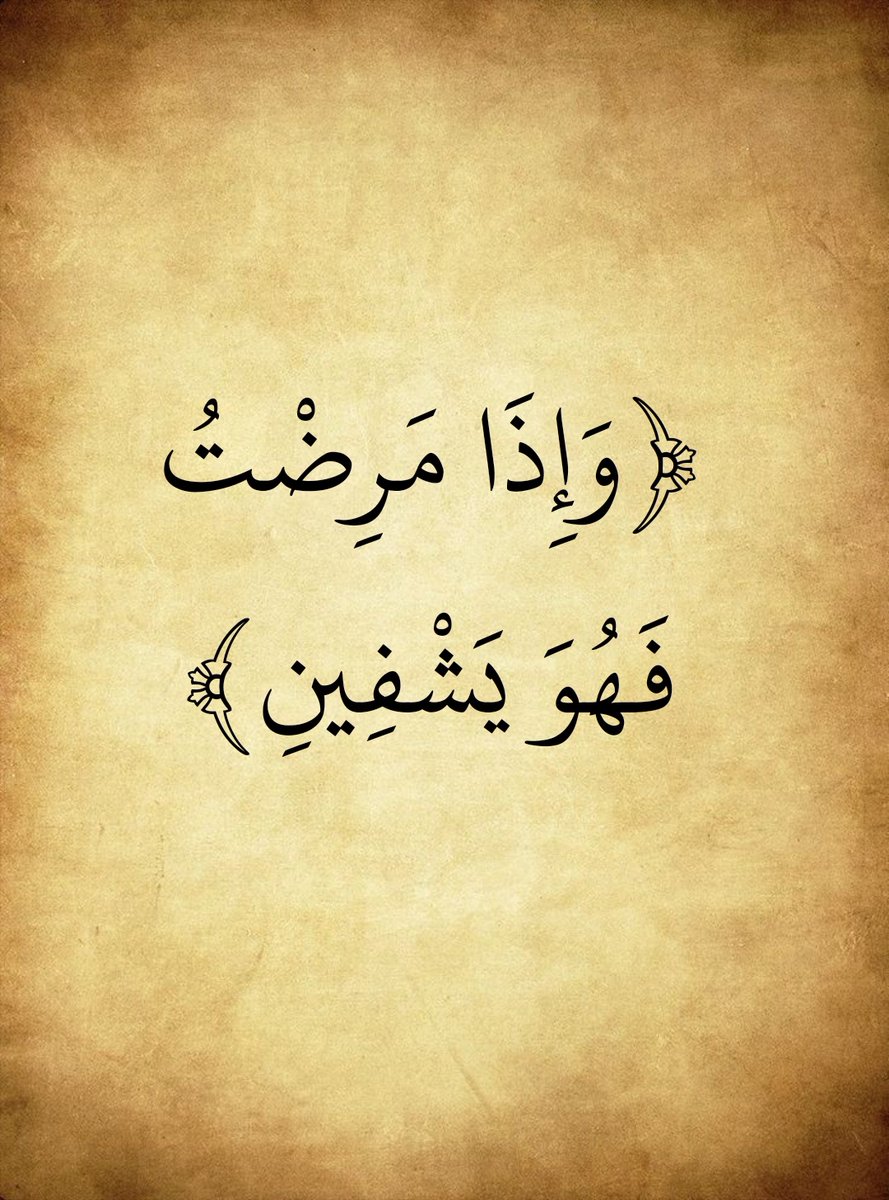 ﴿وَإِذَا مَرِضْتُ
فَهُوَ يَشْفِينِ﴾